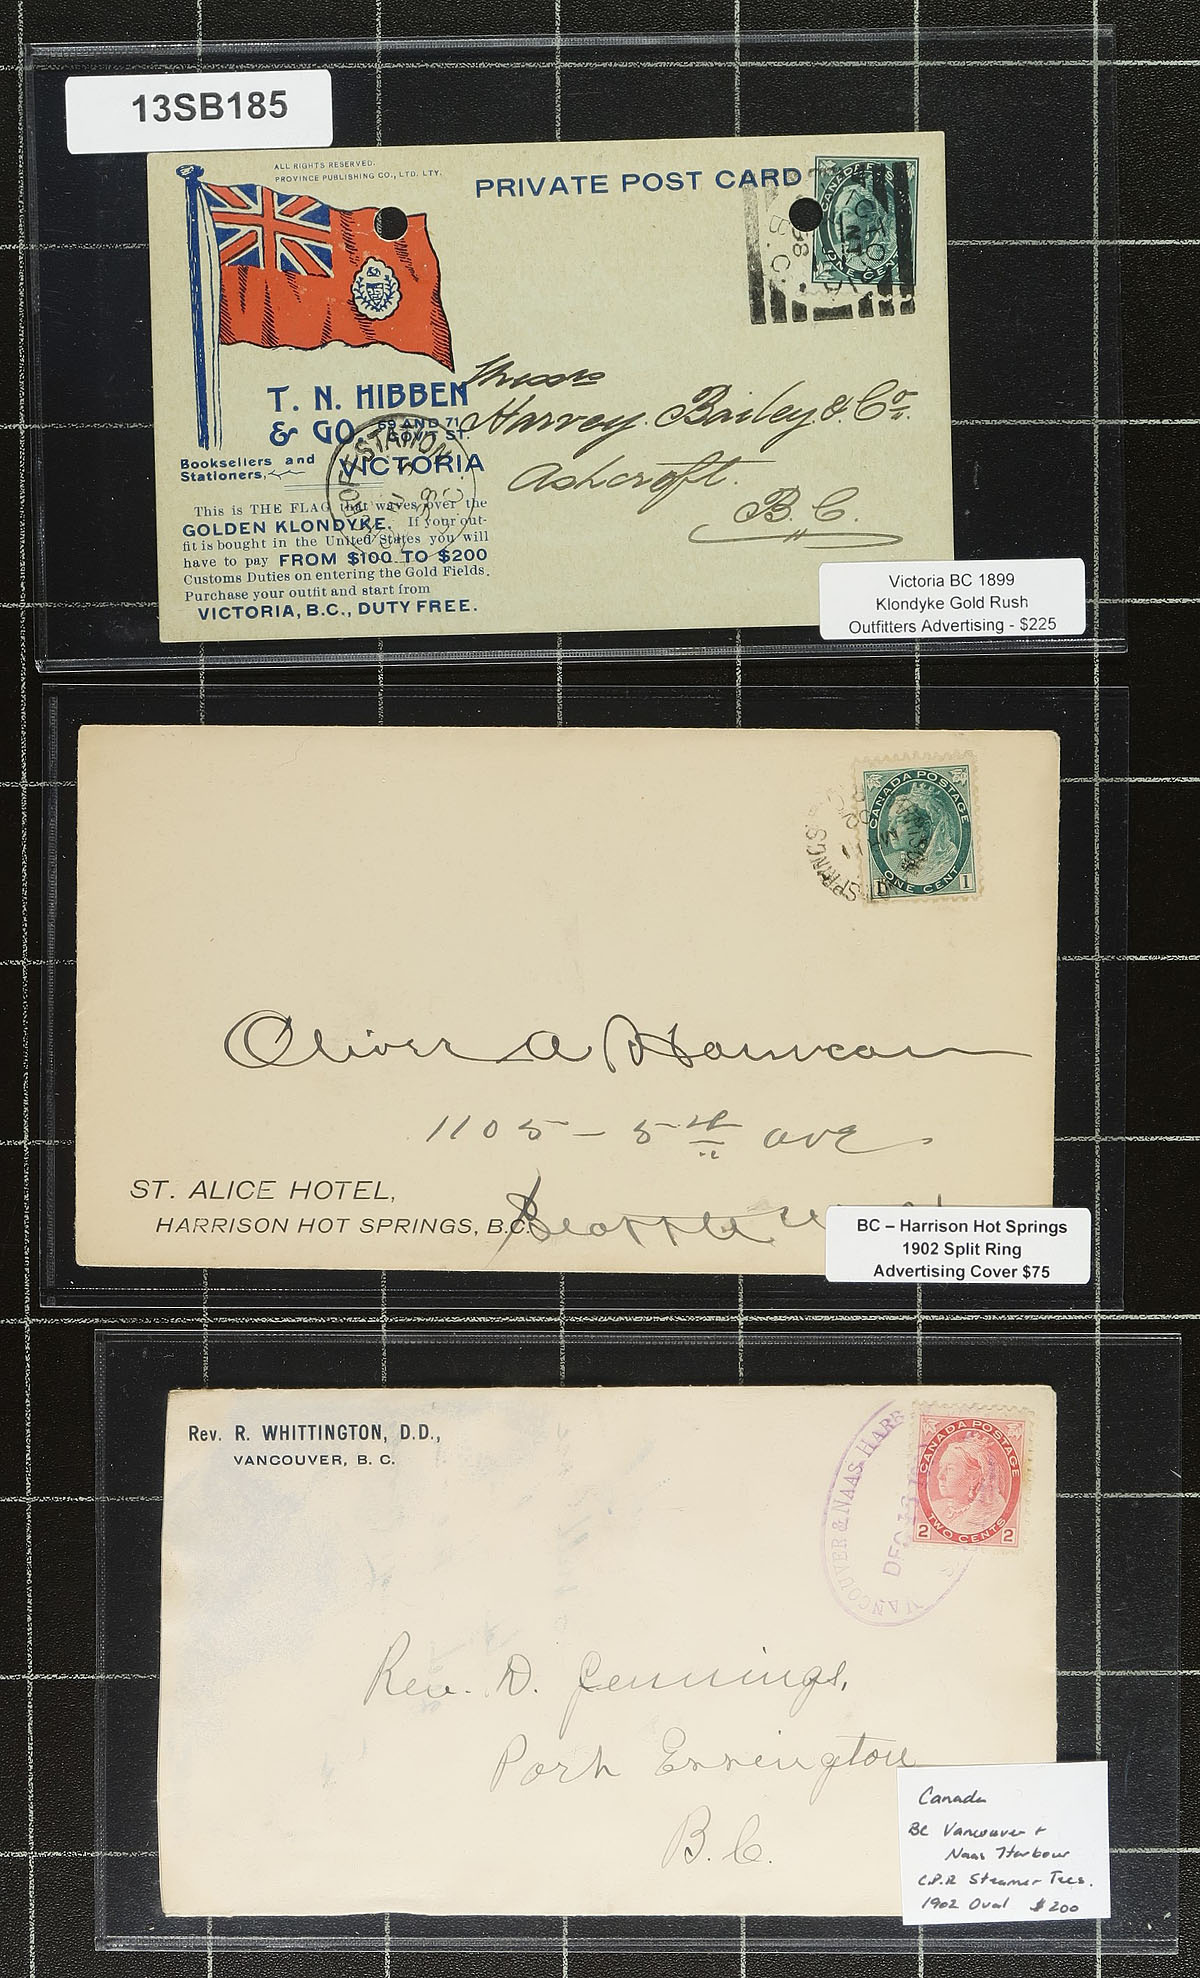 13SB185
ALL RIGHTS RESERVED.
PROVINCE PUBLISHING CO., LTD. LTY.
PRIVATE POST CARD
CANADA
ONE CENT
B.C.
T. N. HIBBEN
& CO.
69 AND 71
GOVT ST.
Booksellers and
Stationers,
VICTORIA
STATION
This is THE FLAG that waves over the
GOLDEN KLONDYKE. If your out-
fit is bought in the United States you will
have to pay FROM $100 TO $200
Customs Duties on entering the Gold Fields.
Purchase your outfit and start from
VICTORIA, B.C., DUTY FREE.
Messrs
Harvey Bailey & Co.
Ashcroft.
B.C.
Victoria BC 1899
Klondyke Gold Rush
Outfitters Advertising - $225
CANADA POSTAGE
ONE CENT
1
SPRINGS
Oliver A
1105 - 5th ave
Seattle
ST. ALICE HOTEL,
HARRISON HOT SPRINGS, B.C.
BC – Harrison Hot Springs
1902 Split Ring
Advertising Cover $75
Rev. R. WHITTINGTON, D.D.,
VANCOUVER, B. C.
CANADA POSTAGE
TWO CENTS
2 2
VANCOUVER & NAAS HARB
DEC 13
Rev. D. Jennings,
Port Essington
B.C.
Canada
BC Vancouver +
Naas Harbour
C.P.R Steamer Tees.
1902 Oval $200